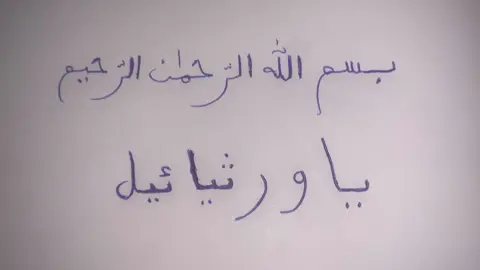 بسم الله الرّحمٰن الرّحيم
يا ورثيائيل